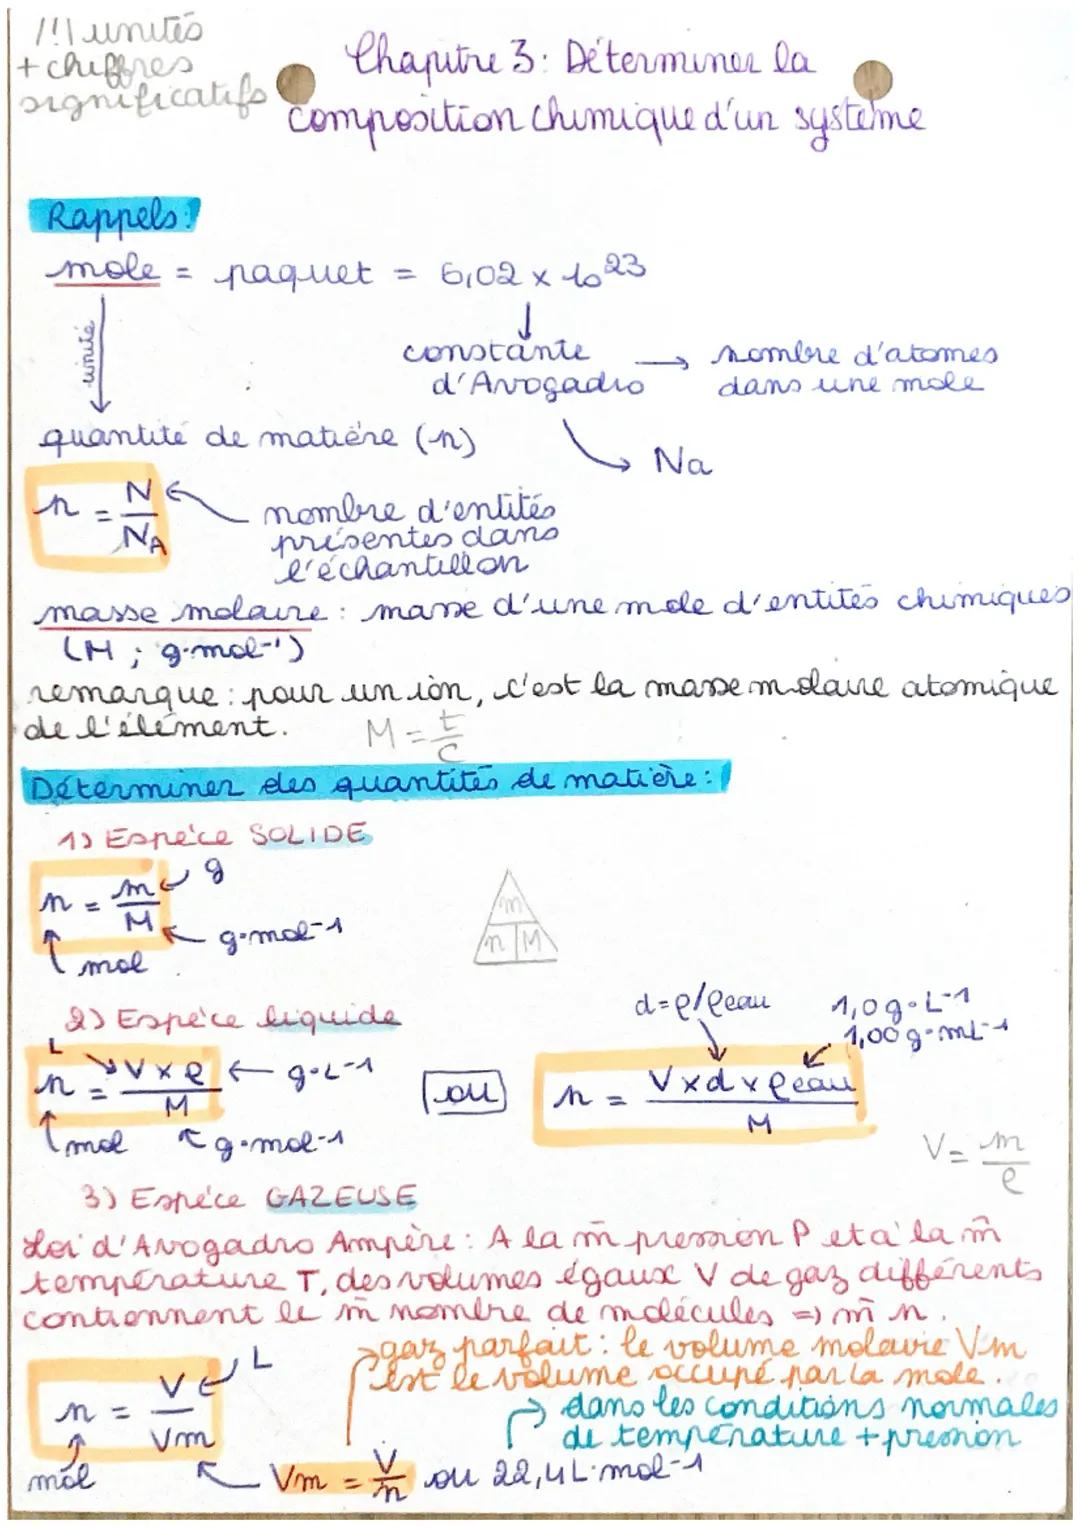 /!\ unités
+ chiffres
significatifs
Chapitre 3: Déterminer la
composition chimique d'un système
Rappels:
mole = paquet = 6,02 x 10^23
unité
constante
d'Avogadro
→ nombre d'atomes
dans une mole
quantité de matière (n)
Na
n = N/NA
nombre d'entités
présentes dans
l'échantillon
masse molaire : masse d'une mole d'entités chimiques
(M ; g·mol-1)
remarque : pour un ion, c'est la masse molaire atomique
de l'élément.
M = t/C
Déterminer des quantités de matière:
1) Espèce SOLIDE
n = m/M
g
g·mol-1
mol
m
n M
2) Espèce liquide
d=ρ/ρeau
1,0 g·L-1
1,00 g·mL-1
L
n = V x ρ/M
g·L-1
ou
n = V x d x ρeau/M
mol
g·mol-1
V = m/ρ
3) Espèce GAZEUSE
Loi d'Avogadro Ampère : A la m̂ pression P et à la m̂
température T, des volumes égaux V de gaz différents
contiennent le m̂ nombre de molécules => m̂ n.
gaz parfait : le volume molaire Vm
est le volume occupé par la mole.
n = V/Vm
L
dans les conditions normales
de température + pression
mol
Vm = V/n ou 22,4 L·mol-1